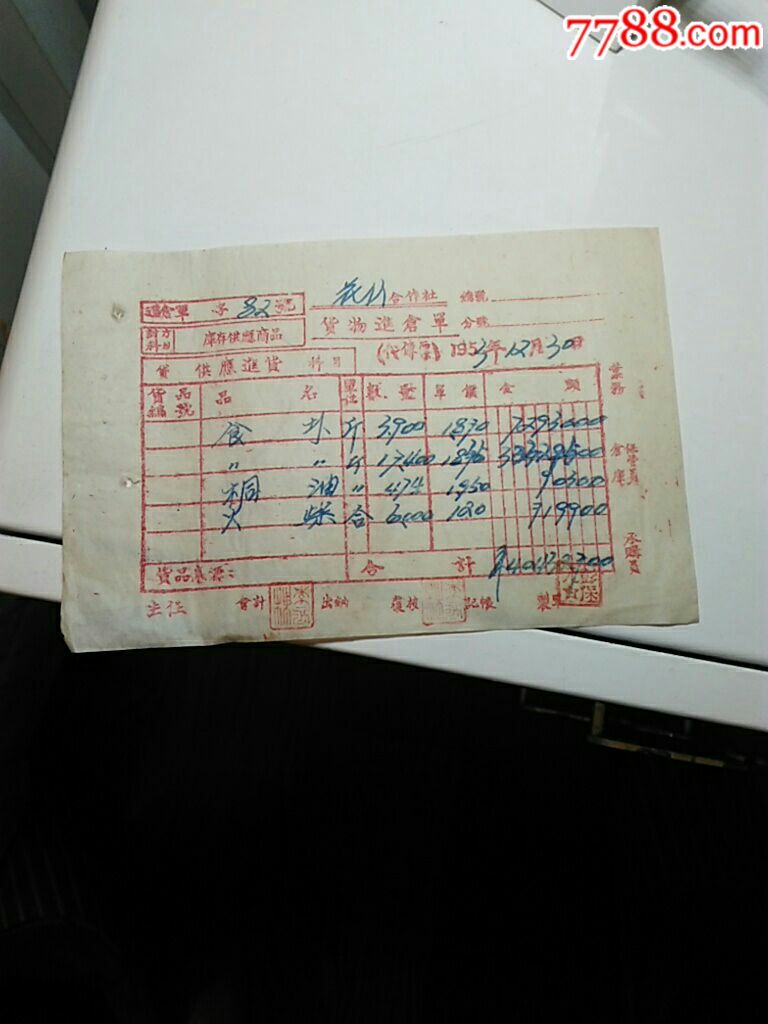 7788.com
進倉單 字 32 號
花竹合作社 總號
貨物進倉單 分號
對方科目 庫存供應商品
(代傳票) 1953年12月30日
貸 供應進貨 科目
貨品編號 品名 單位 數量 單價 金額
食 斤 3900 1870 7293000
〃 〃 斤 17400
桐油 〃 474 1950 90300
火柴 合 6000 120 719900
貨品來源: 合計
業務
倉庫 保管員
承購員
主任 會計 出納 覆核 記帳 製單